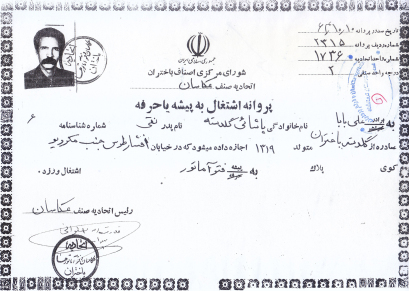 تاریخ صدور پروانه ۶۴/۱۰/۱۰
شماره ردیف پروانه ۲۳۱۵
شماره واحد اتحادیه ۱۷۳۶
درجه واحد صنفی ۲
جمهوری اسلامی ایران
شورای مرکزی اصناف باختران
اتحادیه صنف عکاسان
پروانه اشتغال به پیشه یا حرفه
به علی پاپا نام خانوادگی پاشائی گلدسته نام پدر تقی شماره شناسنامه ۶
صادره از گلدسته باختران متولد ۱۳۱۹ اجازه داده میشود که در خیابان افشار طوس جنب
کوی پلاک به پیشه فتو آماتور اشتغال ورزد.
رئیس اتحادیه صنف عکاسان
اتحادیه
باختران